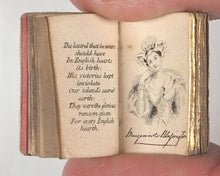 The laurel that he wears
should have
In English hearts
its birth;
His victories kept
inviolate
Our island's sacred
earth:
They were the glorious
ransom given
For every English
hearth.